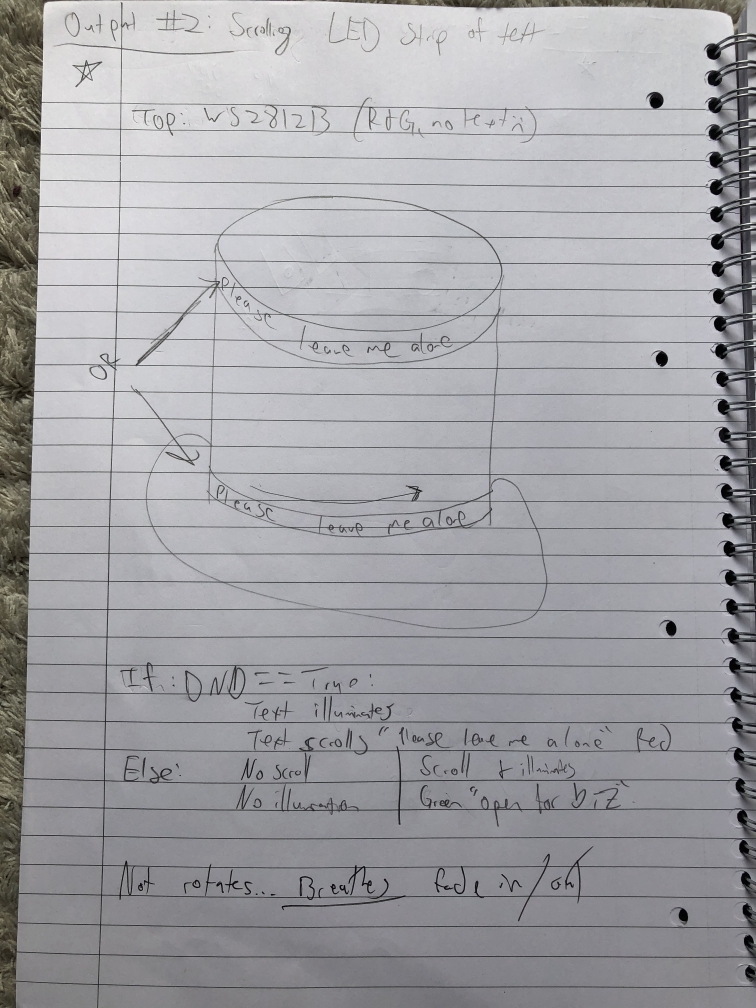 Output #2: Scrolling LED Strip of text
Top: WS2812B (R+G, no text)
Please
leave me alone
OR
Please
leave me alone
If: DND == True:
Text illuminates
Text scrolls "Please leave me alone" Red
Else: No scroll | Scroll + illuminates
No illumination | Green "open for biz"
Not rotates... Breathes fade in/out